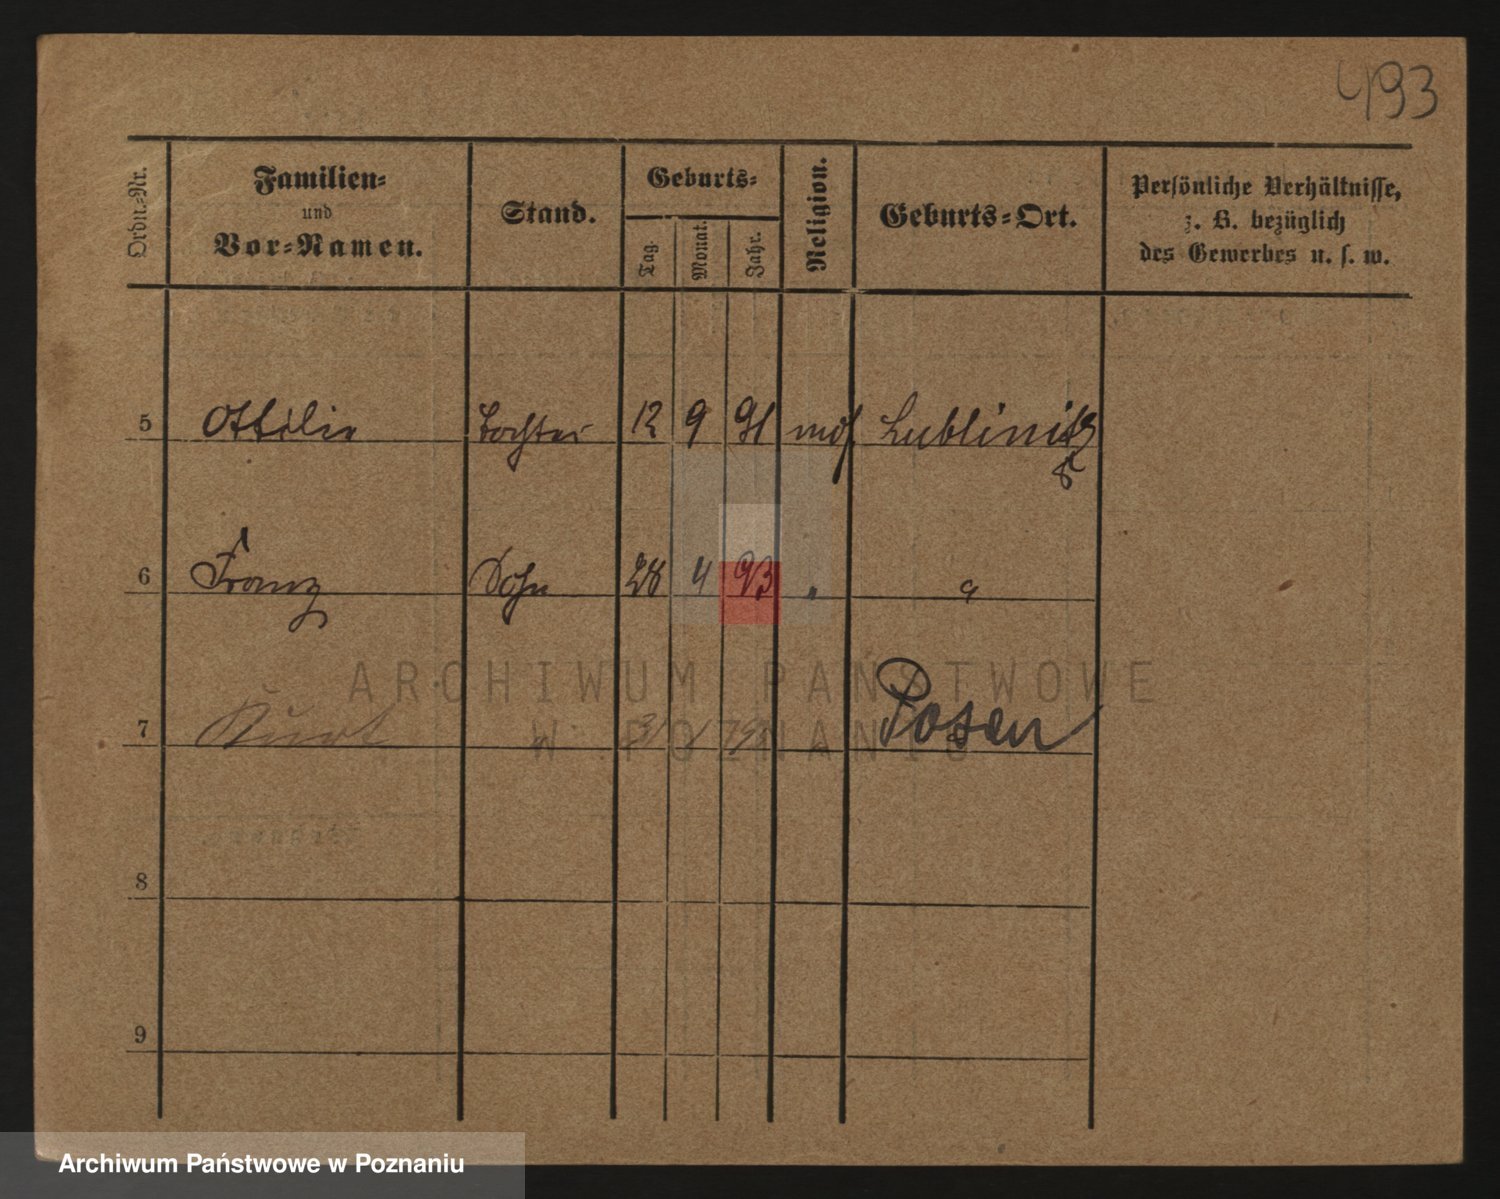 493
Ordn.-Nr. Familien- und Vor-Namen. Stand. Geburts- Tag. Monat. Jahr. Religion. Geburts-Ort. Persönliche Verhältnisse, z. B. bezüglich des Gewerbes u. s. w.
5 Ottilie Tochter 12 9 91 mos. Lublinitz
6 Franz Sohn 28 4 93 " "
ARCHIWUM PAŃSTWOWE
7 Kurt Posen
W POZNANIU
8
9
Archiwum Państwowe w Poznaniu